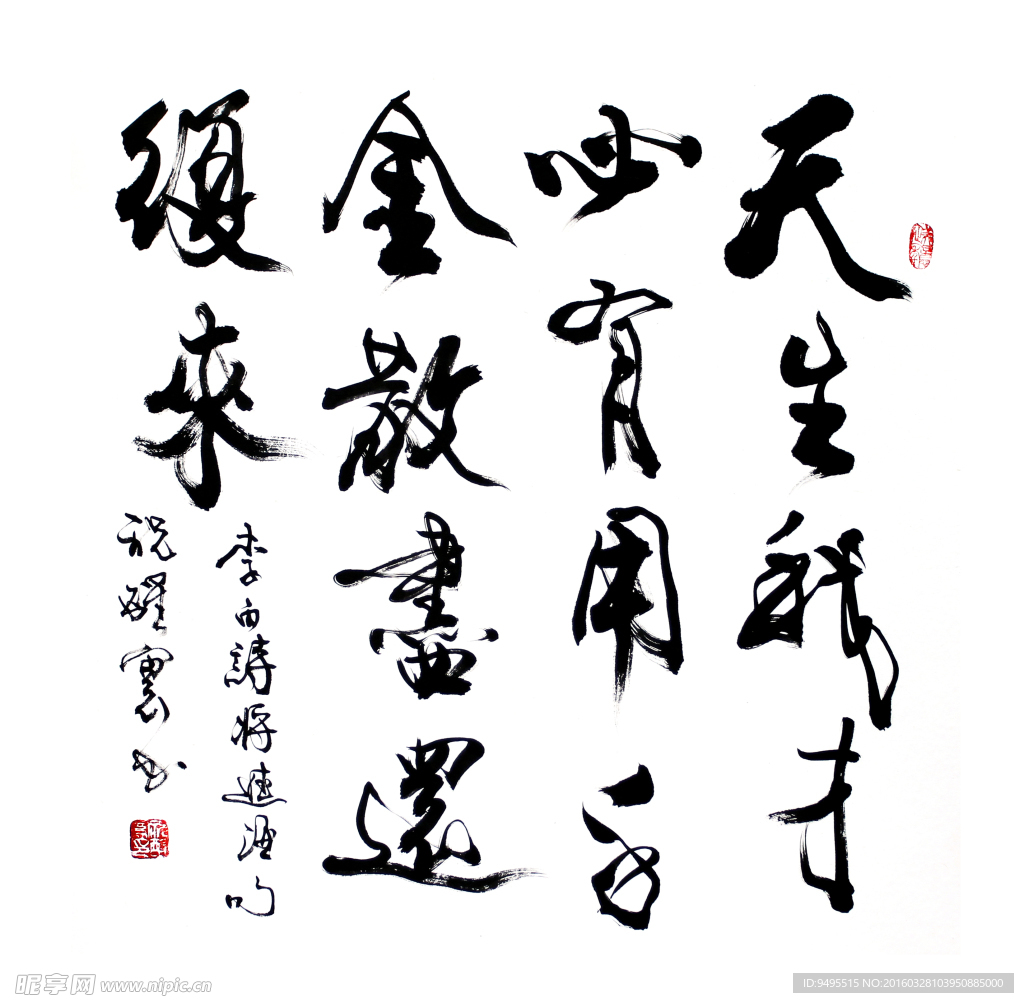 天生我才
必有用千
金散盡還
復來
李白詩將進酒句
祝
昵享网 www.nipic.cn
ID:9495515 NO:20160328103950885000